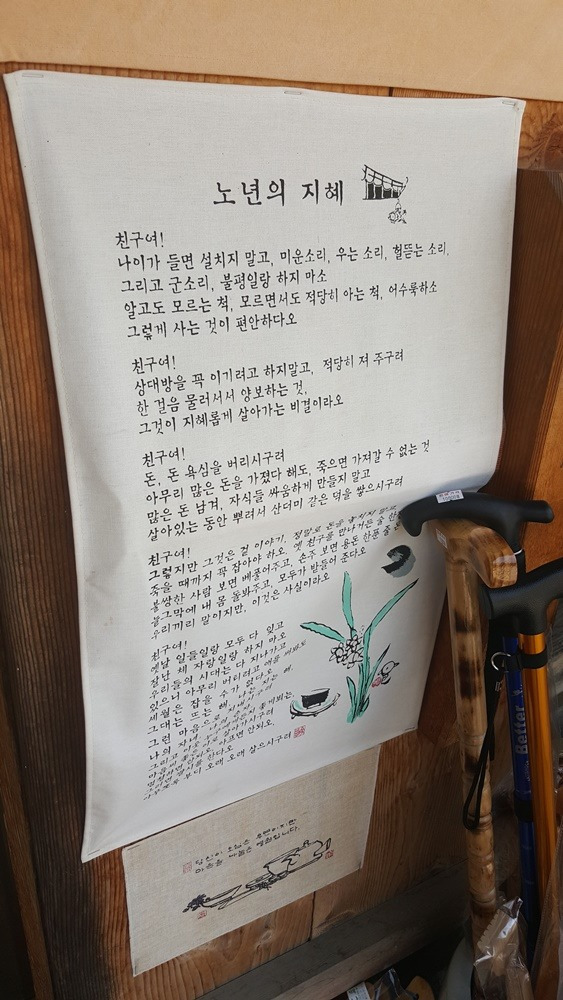 노년의 지혜
친구여!
나이가 들면 설치지 말고, 미운소리, 우는 소리, 헐뜯는 소리,
그리고 군소리, 불평일랑 하지 마소
알고도 모르는 척, 모르면서도 적당히 아는 척, 어수룩하소
그렇게 사는 것이 편안하다오
친구여!
상대방을 꼭 이기려고 하지말고, 적당히 져 주구려
한 걸음 물러서서 양보하는 것,
그것이 지혜롭게 살아가는 비결이라오
친구여!
돈, 돈 욕심을 버리시구려
아무리 많은 돈을 가졌다 해도, 죽으면 가져갈 수 없는 것
많은 돈 남겨, 자식들 싸움하게 만들지 말고
살아있는 동안 뿌려서 산더미 같은 덕을 쌓으시구려
친구여!
그렇지만 그것은 겉 이야기, 정말로 돈을 놓치지 말고
죽을 때까지 꼭 잡아야 하오 옛 친구를 만나거든 술 한
불쌍한 사람 보면 베풀어주고, 손주 보면 용돈 한푼 줄
늘그막에 내 몸 돌봐주고, 모두가 받들어 준다오
우리끼리 말이지만, 이것은 사실이라오
친구여!
옛날 일들일랑 모두 다 잊고
잘난 체 자랑일랑 하지 마오
우리들의 시대는 다 지나가고
있으니 아무리 버티려고 애를 써봐도
세월은 잡을 수가 없다오
그대는 뜨는 해, 나는 지는 해,
그런 마음으로 지내시구려
나의 자녀,
부디 오래 오래 살으시구려
당신이 오심은 우연이지만
Better